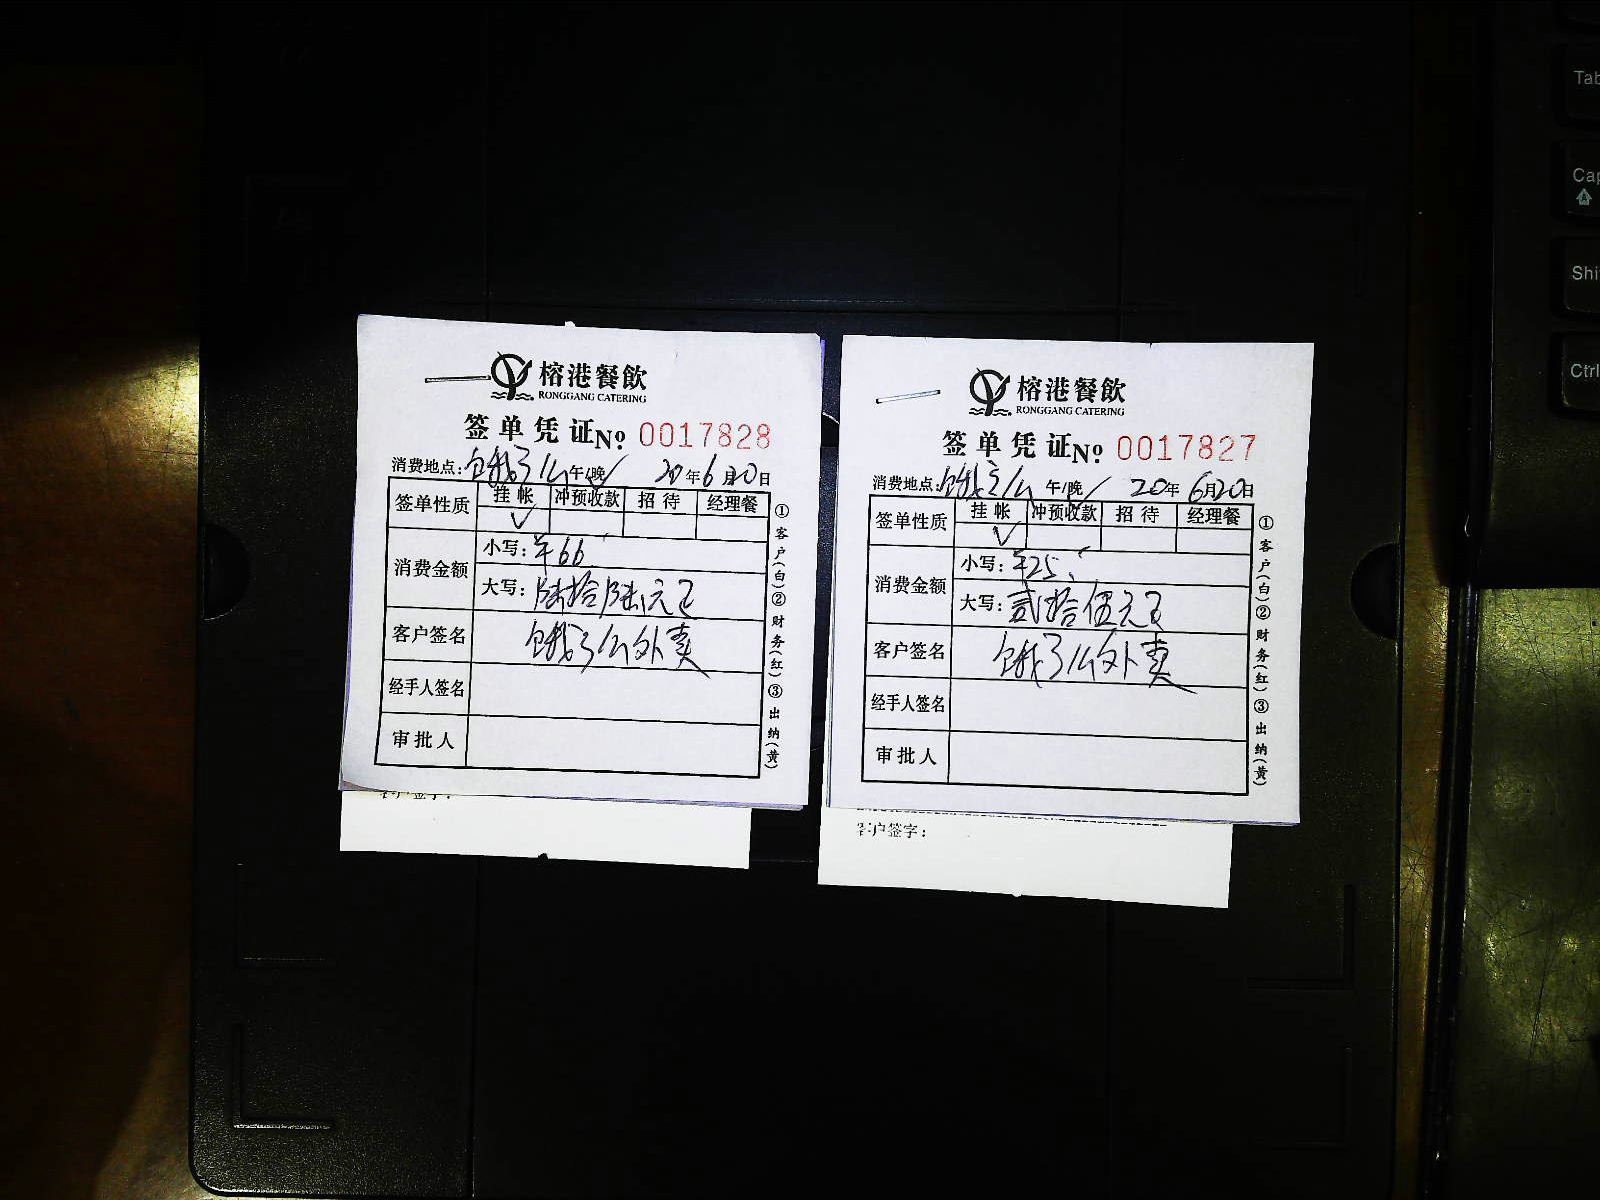 榕港餐飲
RONGGANG CATERING
签单凭证 № 0017828
消费地点:饿了么 午/晚✓ 20年6月20日
签单性质 挂帐 冲预收款 招待 经理餐
✓
消费金额 小写:¥66
大写:陆拾陆元正
客户签名 饿了么外卖
经手人签名
审批人
①客户(白)②财务(红)③出纳(黄)
客户签字:
榕港餐飲
RONGGANG CATERING
签单凭证 № 0017827
消费地点:饿了么 午/晚✓ 20年6月20日
签单性质 挂帐 冲预收款 招待 经理餐
✓
消费金额 小写:¥25
大写:贰拾伍元正
客户签名 饿了么外卖
经手人签名
审批人
①客户(白)②财务(红)③出纳(黄)
客户签字:
Tab
Cap
Shi
Ctrl